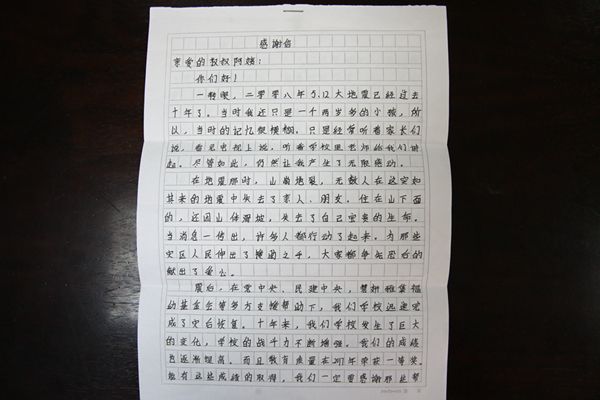 感谢信
亲爱的叔叔阿姨：
你们好！
一转眼，二零零八年5.12大地震已经过去
十年了。当时我还只是一个两岁多的小孩，所
以，当时的记忆很模糊。只是经常听着家长们
说，看见电视上说，听着学校里老师给我们讲
起。尽管如此，仍然让我产生了无限感动。
在地震那时，山崩地裂，无数人在这突如
其来的地震中失去了亲人、朋友。住在山下面
的，还因山体滑坡，失去了自己宝贵的生命。
当消息一传出，许多人都行动了起来。为那些
灾区人民伸出了援助之手，大家都争先恐后的
献出了爱心。
震后，在党中央、民建中央，
动基金会等多方支援帮助下，我们学校迅速完
成了灾后恢复。十年来，我们学校发生了巨大
的变化，学校的战斗力不断增强。我们的成绩
也逐渐提高。而且教育质量在2017年荣获一等奖。
能有这些成绩的取得，我们一定要感谢那些帮